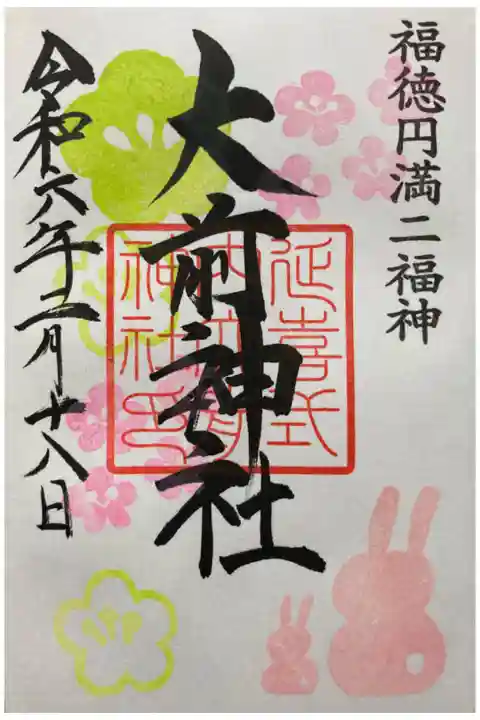 福徳円満二福神
大前神社
延喜式
内大前
神社印
令和六年二月十八日